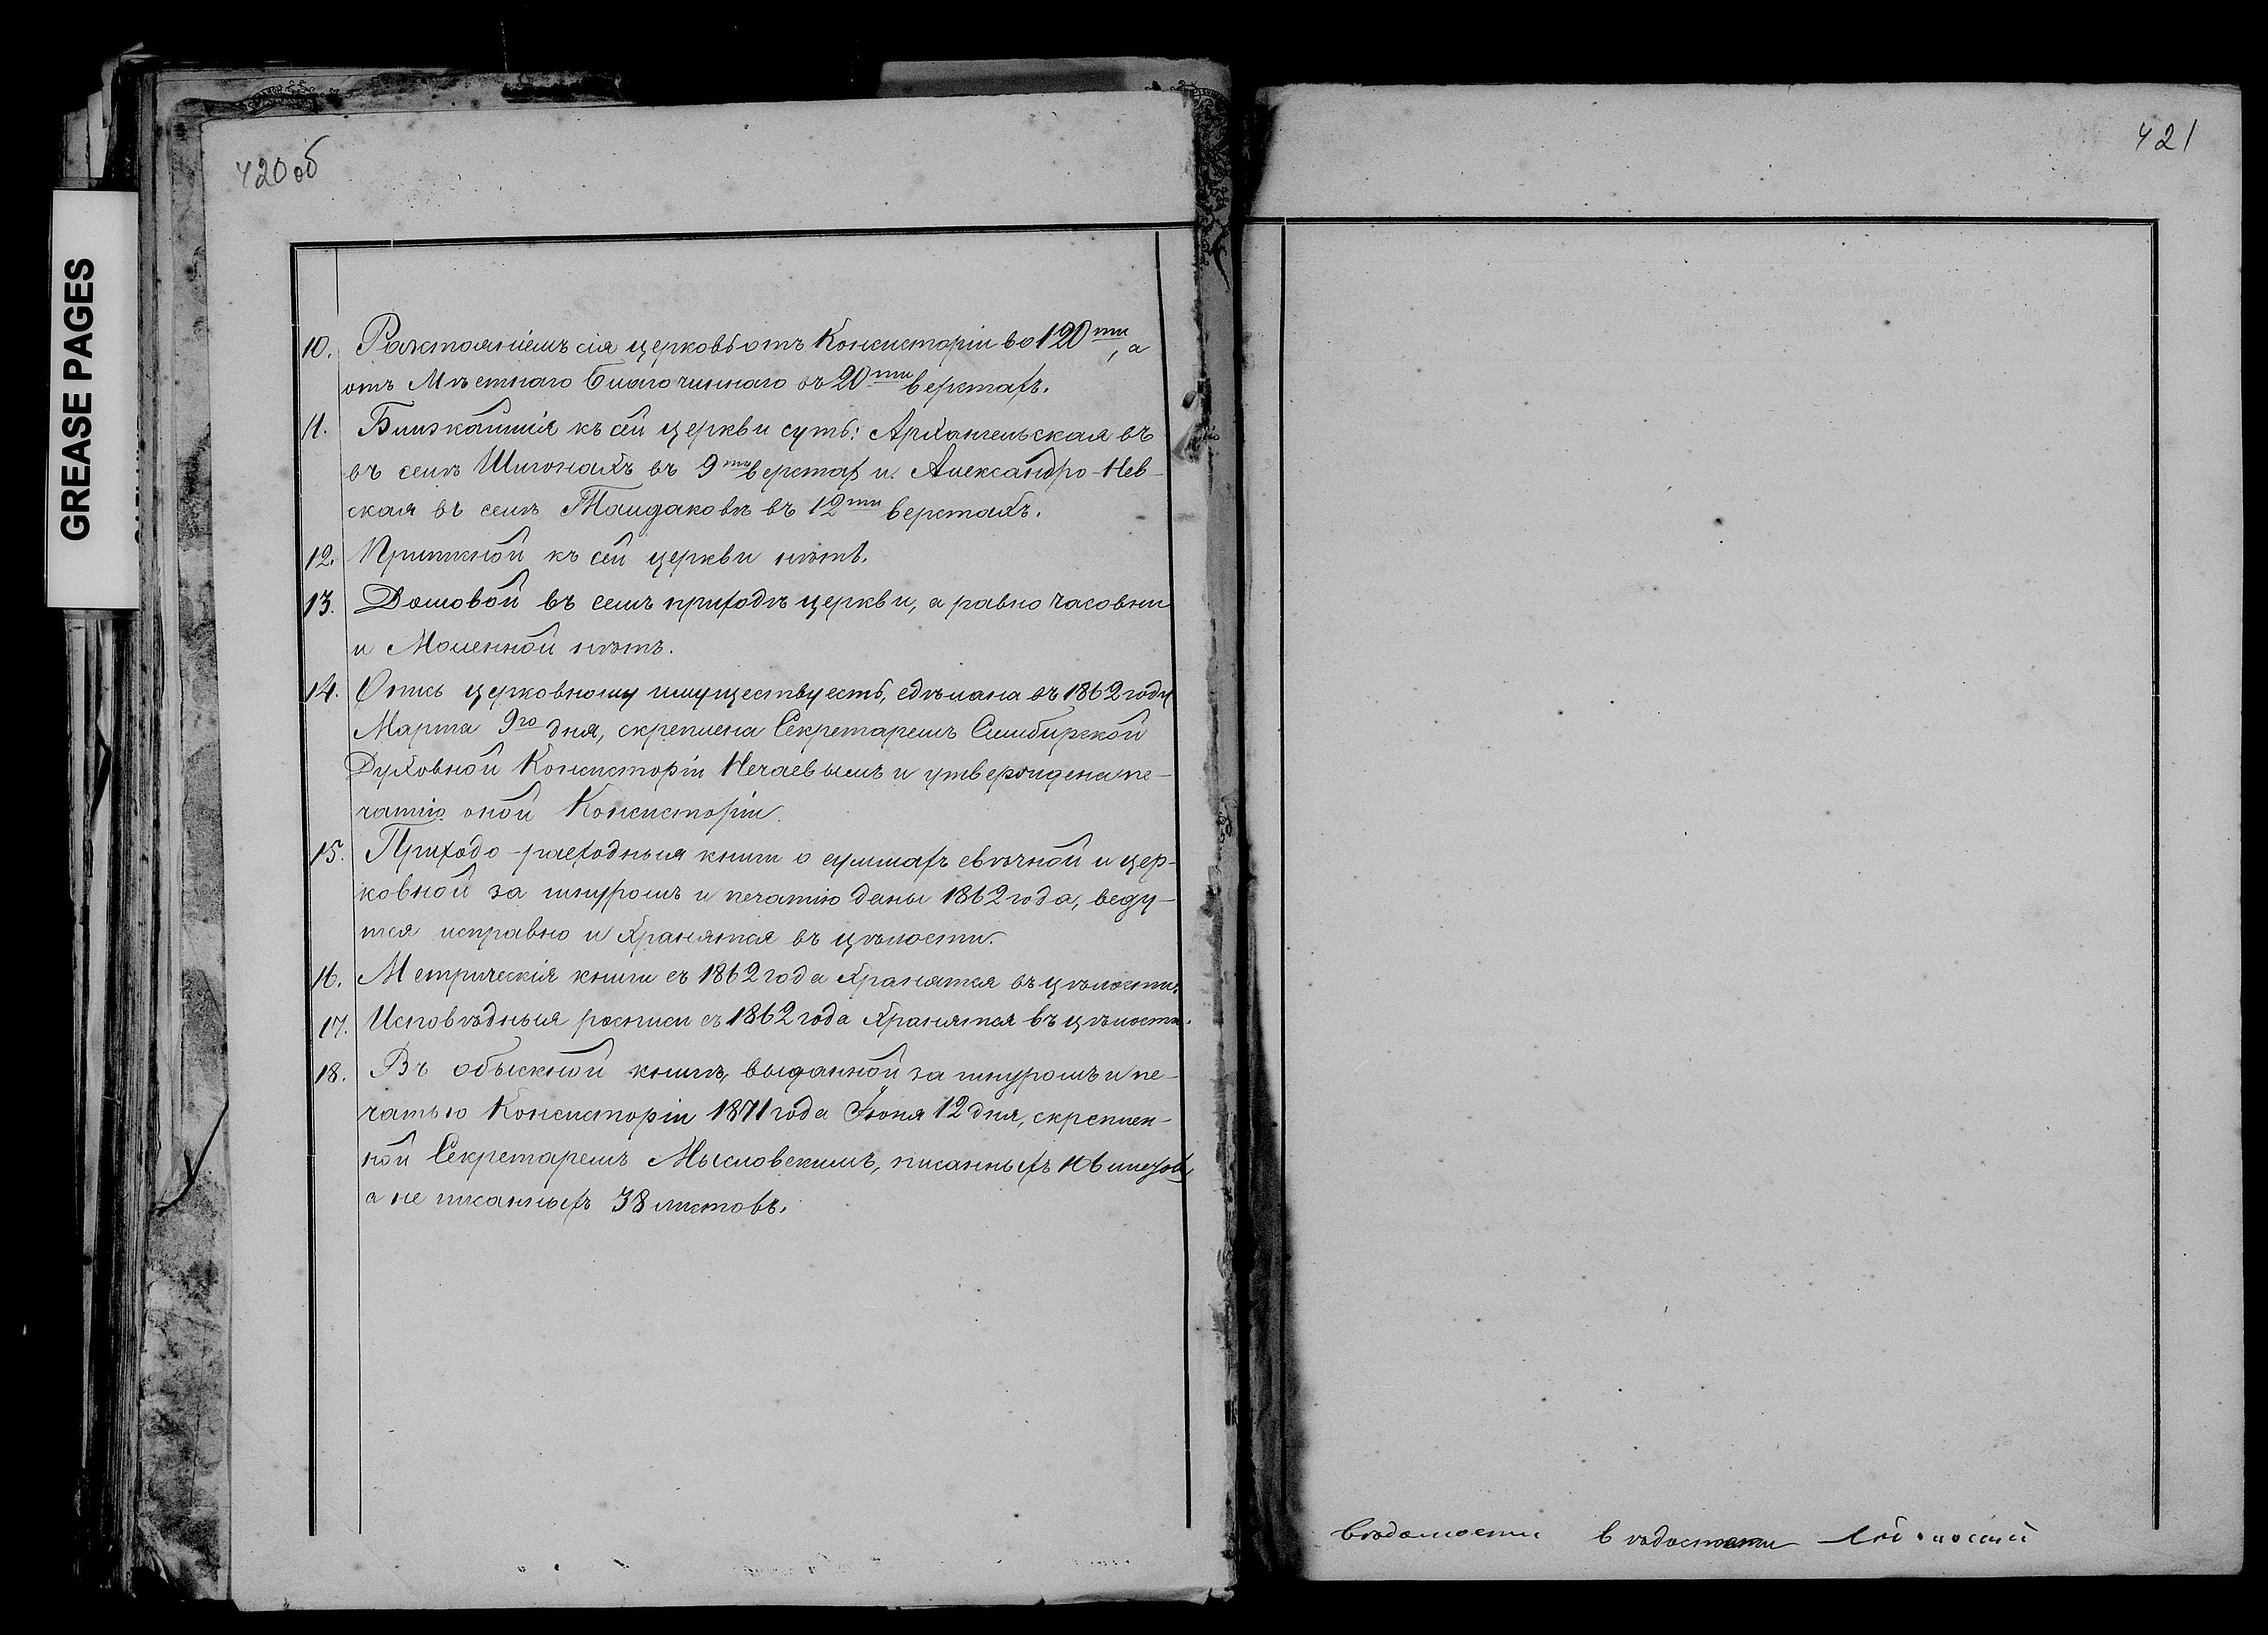 420 об
10. Разстояніемъ сія церковь отъ Консисторіи во 120ти, а
отъ Мѣстнаго Благочиннаго въ 20ти верстахъ.
11. Ближайшія къ сей церкви суть: Архангельская въ
въ селѣ Шигонахъ въ 9ти верстах и Александро-Нев-
ская въ селѣ Тайдаковѣ въ 12ти верстахъ.
12. Приписной къ сей церкви нѣтъ.
13. Домовой въ семъ приходѣ церкви, а равно часовни
и Моленной нѣтъ.
14. Опись церковному имуществу есть, сдѣлана въ 1862 году
Марта 9го дня, скреплена Секретаремъ Симбирской
Духовной Консисторіи Нечаевымъ и утверждена пе-
чатію оной Консисторіи.
15. Приходо-расходныя книги о суммахъ свѣчной и цер-
ковной за шнуромъ и печатію даны 1862 года, веду-
тся исправно и хранятся въ цѣлости.
16. Метрическія книги съ 1862 года хранятся въ цѣлости.
17. Исповѣдныя росписи съ 1862 года хранятся въ цѣлости.
18. Въ обыскной книгѣ, выданной за шнуромъ и пе-
чатью Консисторіи 1871 года Іюня 12 дня, скреплен-
ной Секретаремъ Мысловскимъ, писанныхъ 106 листов,
а не писанныхъ 38 листовъ.
421
Вѣдомости
GREASE PAGES